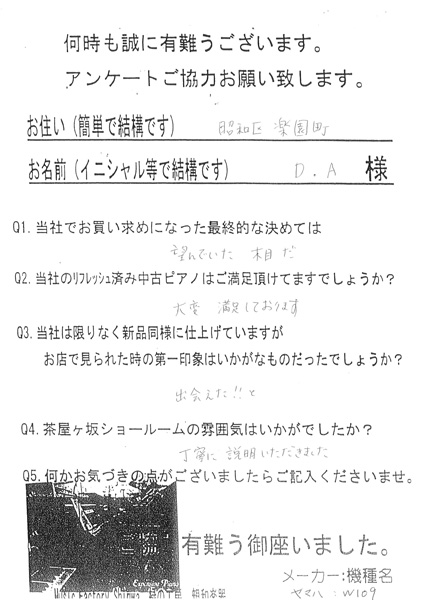 何時も誠に有難うございます。
アンケートご協力お願い致します。
お住い（簡単で結構です） 昭和区 楽園町
お名前（イニシャル等で結構です） D.A 様
Q1.当社でお買い求めになった最終的な決めては
望んでいた 木目だ
Q2.当社のﾘﾌﾚｯｼｭ済み中古ピアノはご満足頂けてますでしょうか？
大変 満足しております
Q3.当社は限りなく新品同様に仕上げていますが
お店で見られた時の第一印象はいかがなものだったでしょうか？
出会えた!!と
Q4.茶屋ヶ坂ショールームの雰囲気はいかがでしたか？
丁寧に 説明いただきました
Q5.何かお気づきの点がございましたらご記入くださいませ。
有難う御座いました。
メーカー:機種名
Music Factory Shinwa
ヤマハ : W109